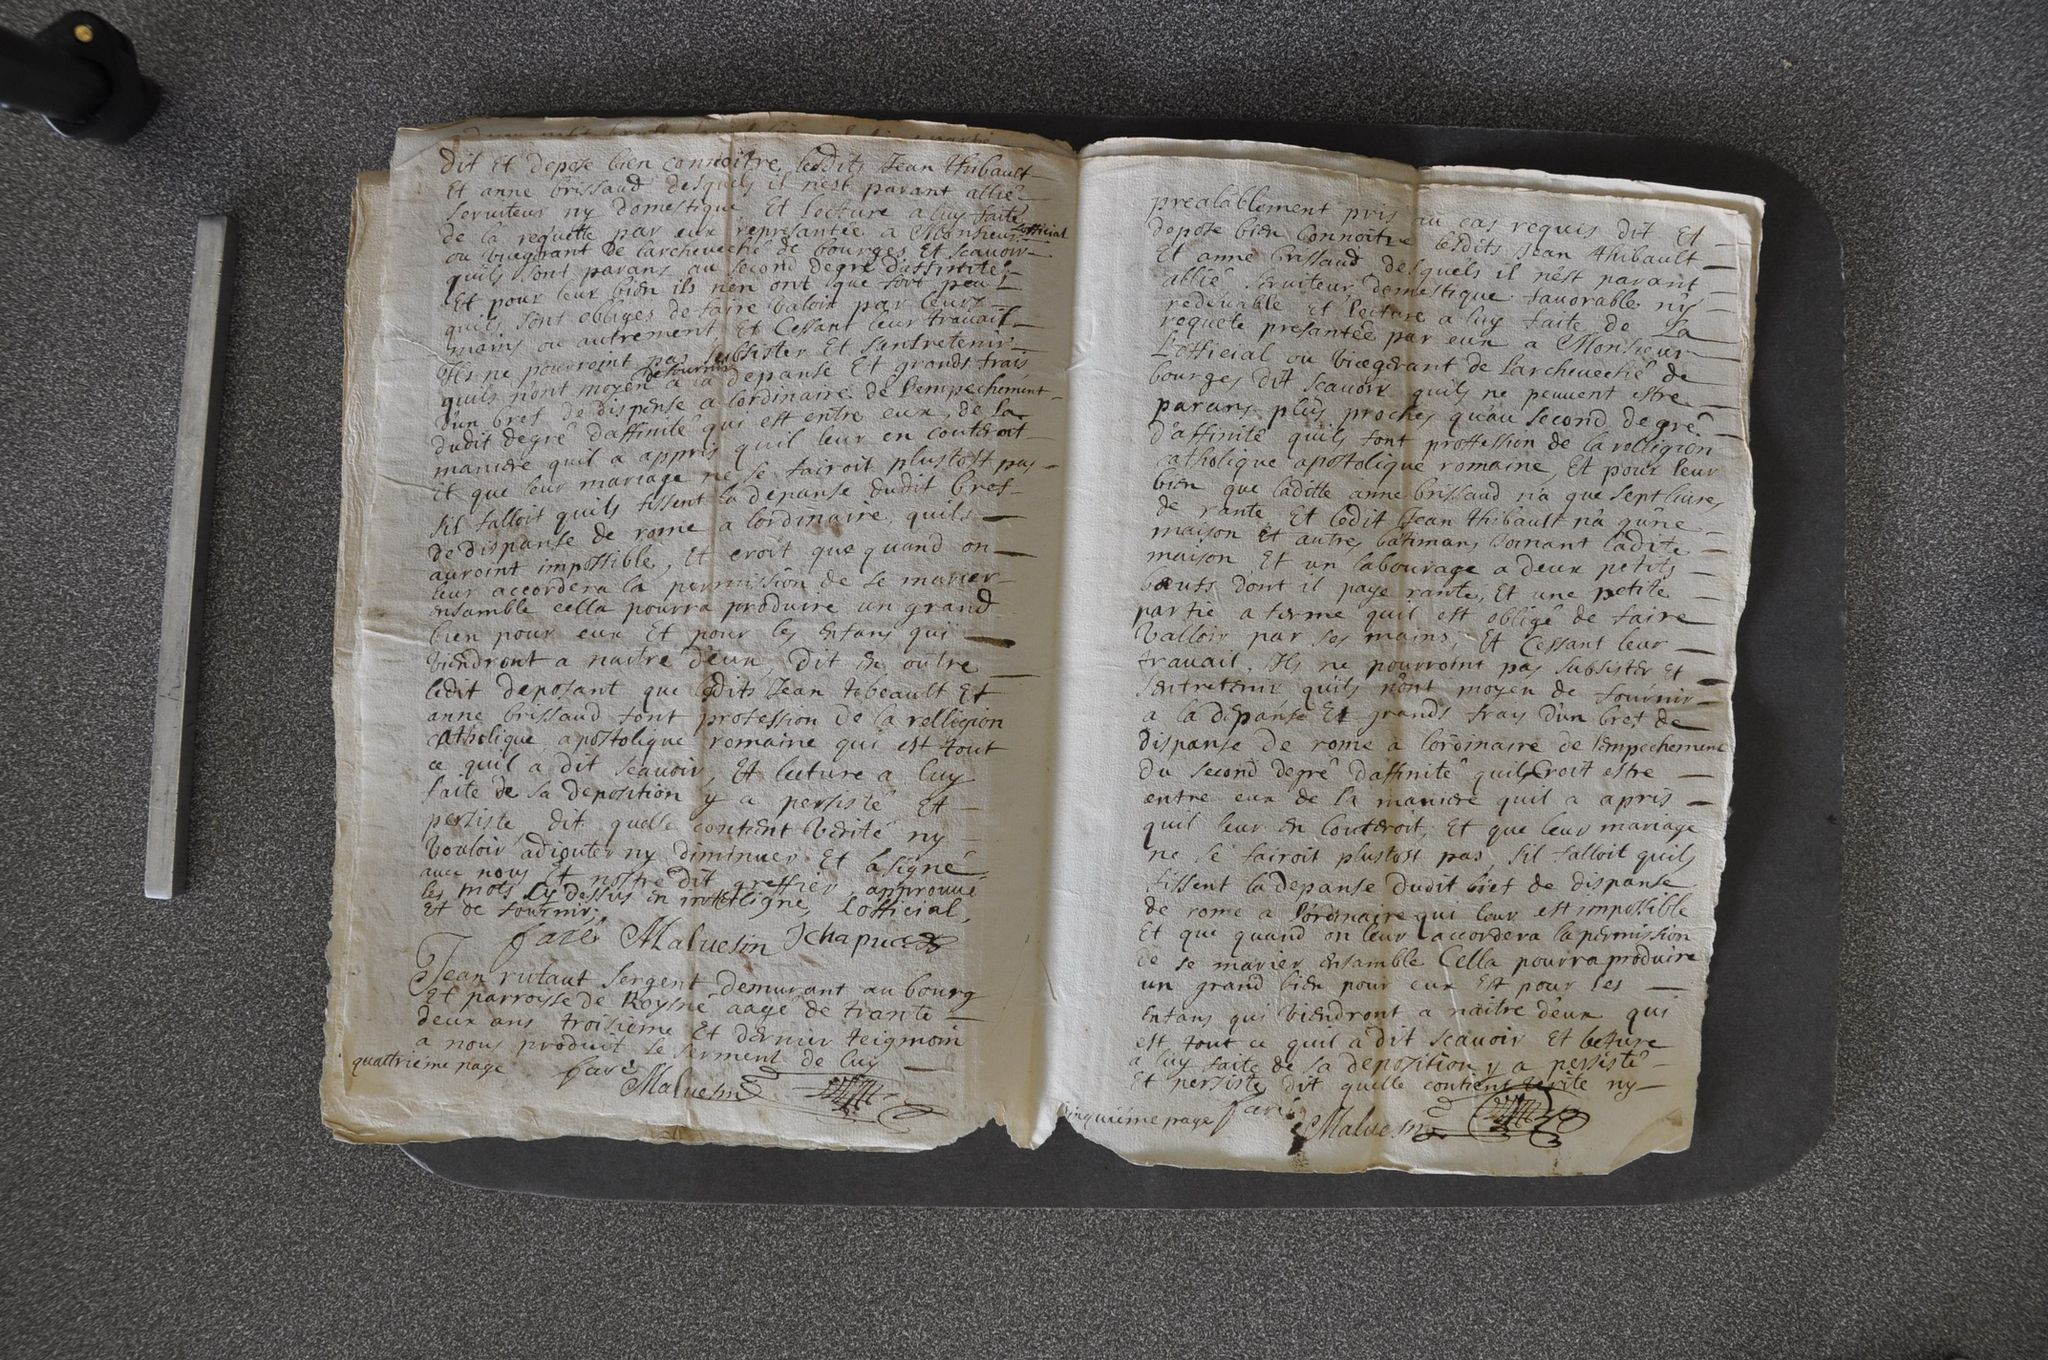 dit Et depose bien connoitre lesdits Jean thibault
Et anne brissaud desquels il n'est parant allié
serviteur ny domestique Et lecture a luy faite
de la requette par eux represantée a Monsieur L'official
ou vicegerant de l'archeveché de bourges Et scavoir
quils sont parans au second degré d'affinité
Et pour leur bien ils n'en ont que fort peu
quils sont obligés de faire valoir par leurs
mains ou autrement, Et Cessant leur travail
Ils ne pourroint pas subsister Et s'antretenir
quils n'ont moyen de fournir a la depanse Et grands frais
d'un bref de dispense a lordinaire de l'empechement
dudit degré d'affinité qui est entre eux, de la
maniere quil a appris quil leur en couteroit
Et que leur mariage ne se fairoit plustost pas
sil falloit quils fissent la depanse dudit bref
de dispanse de rome a lordinaire, quils
auroint impossible, Et croit que quand on
leur accordera la permission de se marier
ensamble cella pourra produire un grand
bien pour eux Et pour les enfans qui
viendront a naitre d'eux, dit en outre
ledit deposant que lesdits Jean tebeault Et
anne brissaud font profession de la relligion
catholique apostolique romaine qui est tout
ce quil a dit scavoir, Et lecture a luy
faite de sa deposition y a persisté Et
persiste dit quelle contient verité ny
vouloir adjouter ny diminuer Et a signé
avec nous Et nostre dit greffier, approuvé
les mots cy dessus en interligne, L'official,
Et de fournir,
faré Malvesin Jchapuced
Jean rutaut sergent demurant au bourg
Et parroysse de Roysne aagé de trante
deux ans troisieme Et dernier teigmoin
a nous produit le serment de luy
quattriéme page faré
Malvesin
prealablement pris au cas requis dit Et
depose bien connoitre lesdits Jean thibault
Et anne brissaud desquels il n'est parant
allié serviteur domestique favorable ny
redevable Et lecture a luy faite de la
requete presantée par eux a Monsieur
L'official ou vicegerant de Larcheveché de
bourges dit scavoir quils ne peuvent estre
parans plus proches qu'au second degré
d'affinité quils font proffession de la relligion
catholique apostolique romaine, Et pour leur
bien que laditte anne brissaud n'a que sept livres
de rante Et ledit Jean thibault n'a qu'une
maison Et autres batimans joignant ladite
maison Et un labourage a deux petits
boeufs dont il paye rante, Et une petite
partie a ferme quil est obligé de faire
valloir par ses mains, Et Cessant leur
travail, Ils ne pourroint pas subsister Et
s'entretenir quils n'ont moyen de fournir
a la depanse Et grands frais d'un bref de
dispanse de rome a lordinaire de l'empechement
du second degré d'affinité quil croit estre
entre eux de la maniere quil a apris
quil leur en couteroit, Et que leur mariage
ne se fairoit plustost pas, sil falloit quils
fissent la depanse dudit bref de dispanse
de rome a l'ordinaire qui leur est impossible
Et que quand on leur accordera la permission
de se marier ensamble Cella pourra produire
un grand bien pour eux Et pour les
enfans qui viendront a naitre d'eux qui
est tout ce quil a dit scavoir Et lecture
a luy faite de sa deposition y a persisté
Et persiste dit quelle contient verité ny
cinquiéme page faré
Malvesin